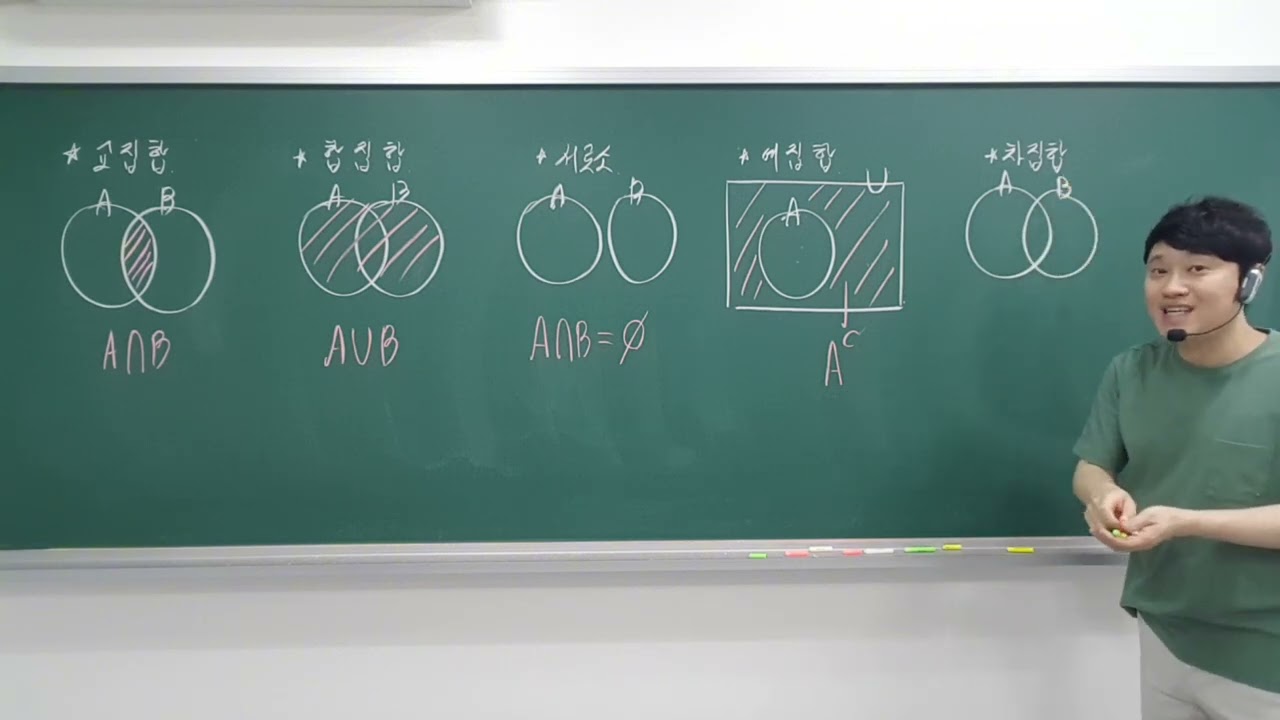 * 교집합
A B
A∩B
* 합집합
A B
A∪B
* 서로소
A B
A∩B=∅
* 여집합
U
A
A^C
* 차집합
A B